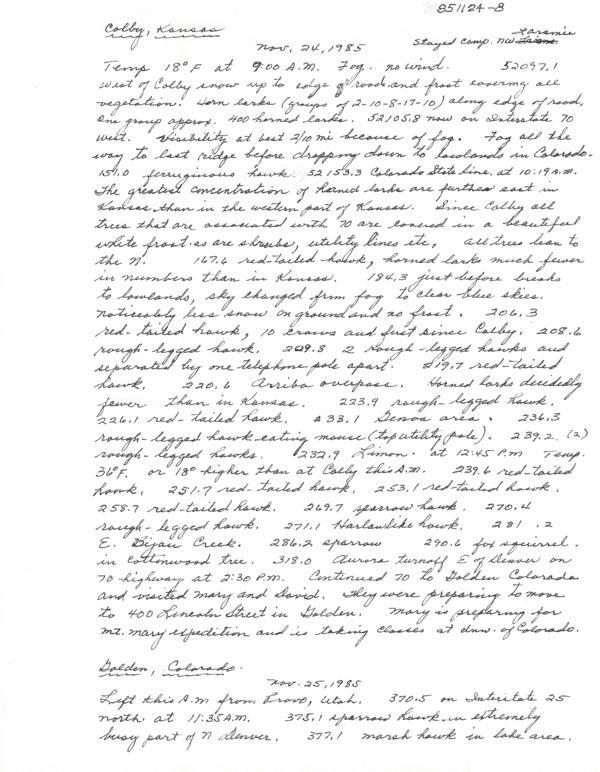 851124-B
Colby, Kansas
Laramie
Nov. 24, 1985 Stayed Comp. NW
Temp 18°F at 9:00 A.M. Fog. no wind. 52097.1
West of Colby snow up to edge of road and frost covering all
vegetation. Horn larks (groups of 2-10-8-17-10) along edge of road,
One group approx. 400 horned larks. 52105.8 now on Interstate 70
west. Visibility at best 2/10 mi because of fog. Fog all the
way to last ridge before dropping down to lowlands in Colorado.
151.0 ferruginous hawk. 52153.3 Colorado State line, at 10:19 A.M.
The greatest concentration of horned larks are further east in
Kansas than in the western part of Kansas. Since Colby all
trees that are associated with 70 are covered in a beautiful
white frost as are shrubs, utility lines etc, all trees lean to
the N. 167.6 red-tailed hawk, horned larks much fewer
in numbers than in Kansas. 184.3 just before breaks
to lowlands, sky changed from fog to clear blue skies.
Noticeably less snow on ground and no frost. 206.3
red-tailed hawk, 10 crows and first since Colby. 208.6
rough-legged hawk. 209.8 2 rough-legged hawks and
separated by one telephone pole apart. 219.7 red-tailed
hawk. 220.6 Arriba overpass. Horned larks decidedly
fewer than in Kansas. 223.9 rough-legged hawk.
226.1 red-tailed hawk. 233.1 Genoa area. 236.3
rough-legged hawk eating mouse (top utility pole). 239.2 (2)
rough-legged hawks. 232.9 Limon. at 12:45 P.M Temp.
36°F. or 18° higher than at Colby this A.M. 239.6 red-tailed
hawk, 251.7 red-tailed hawk, 253.1 red-tailed hawk.
258.7 red-tailed hawk. 269.7 sparrow hawk. 270.4
rough-legged hawk. 271.1 Harlanlike hawk. 281.2
E. Bijau Creek. 286.2 sparrow 290.6 fox squirrel
in cottonwood tree. 318.0 Aurora turnoff E of Denver on
70 highway at 2:30 P.M. Continued 70 to Golden Colorado
and visited Mary and David. They were preparing to move
to 400 Lincoln Street in Golden. Mary is preparing for
Mt. Mary expedition and is taking classes at Unv. of Colorado.
Golden, Colorado.
Nov. 25, 1985
Left this A.M from Provo, Utah. 370.5 on Interstate 25
north at 11:35 A.M. 375.1 sparrow hawk in extremely
busy part of N Denver. 377.1 marsh hawk in lake area.